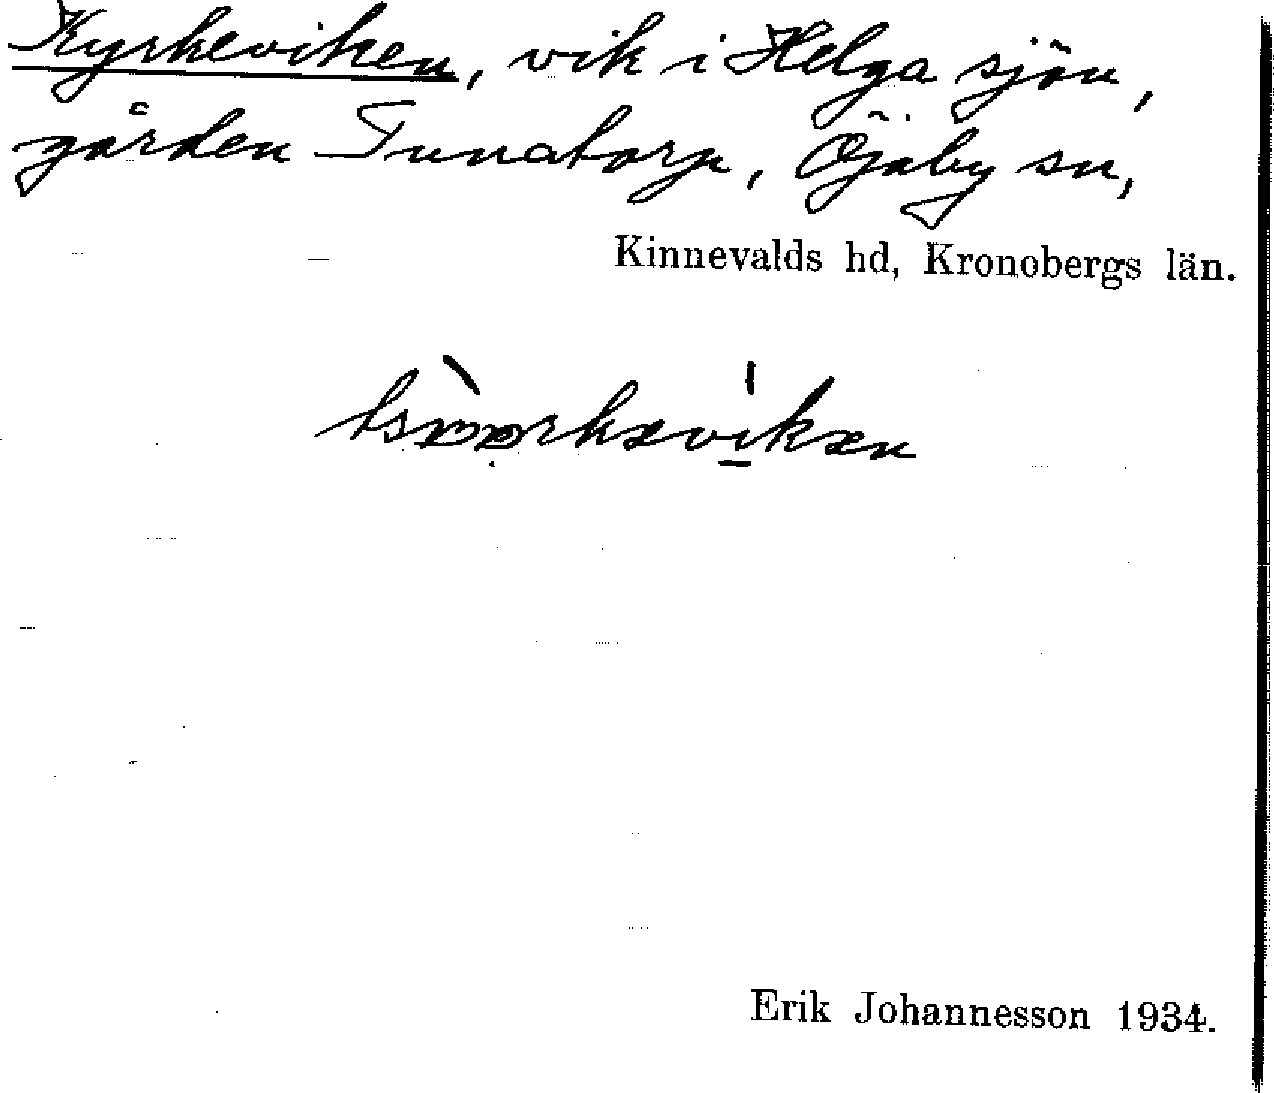 Kyrkeviken, vik i Helga sjön,
gården Tunatorp, Öjaby sn,
Kinnevalds hd, Kronobergs län.
Erik Johannesson 1934.